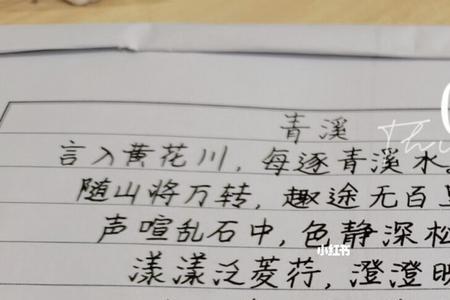 青溪
言入黄花川，每逐青溪水。
随山将万转，趣途无百
声喧乱石中，色静深松
小红书
漾漾泛菱荇，澄澄